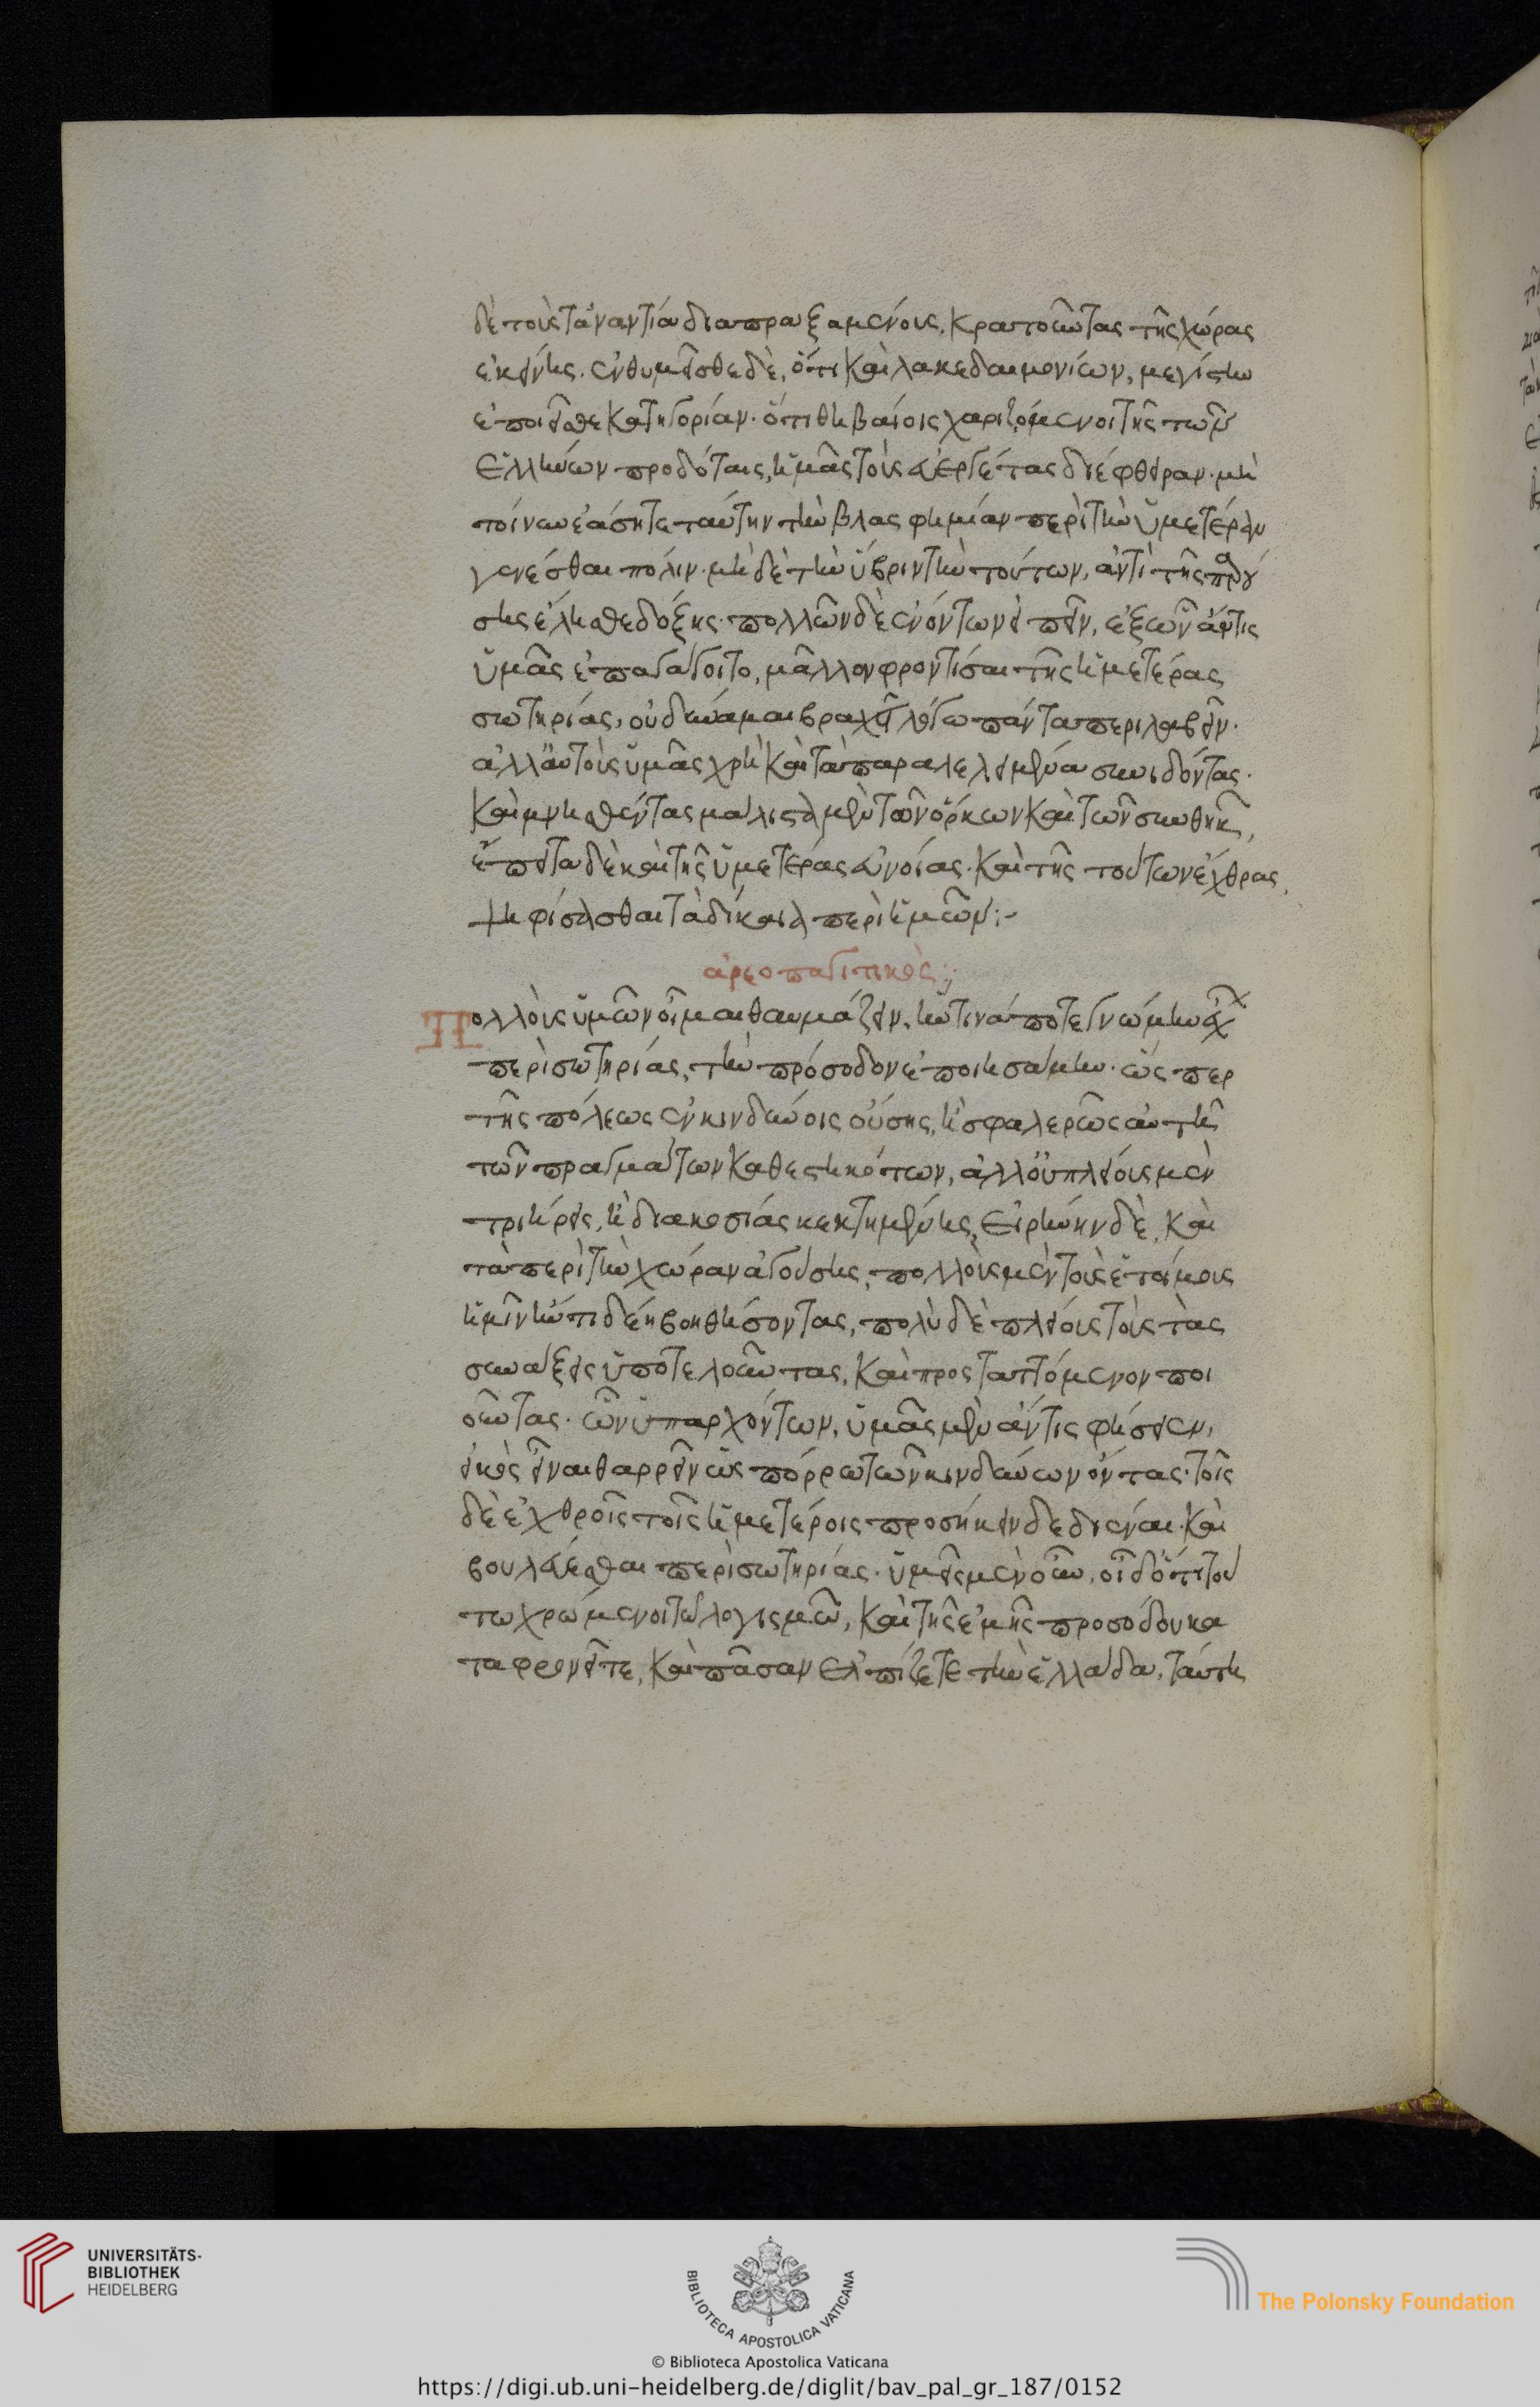 δὲ τοὺς τἀναντία διαπραξαμένους, κρατοῦντας τῆς χώρας
ἐκείνης. ἐνθυμεῖσθε δὲ, ὅτι καὶ λακεδαιμονίων, μεγίστην
ἐποιεῖσθε κατηγορίαν. ὅτι θηβαίοις χαριζόμενοι τῆς τῶν
Ἑλλήνων προδόταις, ἡμᾶς τοὺς εὐεργέτας διέφθειραν. μὴ
τοίνυν ἐάσητε ταύτην τὴν βλασφημίαν περὶ τὴν ὑμετέραν
γενέσθαι πόλιν. μὴ δὲ τὴν ὕβριν τὴν τούτων, ἀντὶ τῆς παρού
σης ἕλησθε δόξης. πολλῶν δὲ ἐνόντων εἰπεῖν, ἐξ ὧν ἄν τις
ὑμᾶς ἐπαγάγοιτο, μᾶλλον φροντίσαι τῆς ἡμετέρας
σωτηρίας, οὐ δύναμαι βραχεῖ λόγω πάντα περιλαβεῖν.
ἀλλ' αὐτοὺς ὑμᾶς χρὴ καὶ τὰ παραλελειμμένα συνιδόντας.
καὶ μνησθέντας μάλιστα μὲν τῶν ὅρκων καὶ τῶν συνθηκῶν,
ἔπειτα δὲ καὶ τῆς ὑμετέρας εὐνοίας. καὶ τῆς τούτων ἔχθρας,
ψηφίσασθαι τὰ δίκαια περὶ ἡμῶν:-
ἀρεοπαγιτικός:
Πολλοὺς ὑμῶν οἶμαι θαυμάζειν, ἥντινά ποτε γνώμην ἔχων
περὶ σωτηρίας, τὴν πρόσοδον ἐποιησάμην. ὥσπερ
τῆς πόλεως ἐν κινδύνοις οὔσης, ἢ σφαλερῶς αὐτῆ
τῶν πραγμάτων καθεστηκότων, ἀλλ' οὐ πλείους μὲν
τριήρεις, ἢ διακοσίας κεκτημένης, Εἰρήνην δὲ, καὶ
τὰ περὶ τὴν χώραν ἀγούσης, πολλοὺς μὲν τοὺς ἑτοίμους
ἡμῖν ἤν τι δέη βοηθήσοντας, πολὺ δὲ πλείους τοὺς τὰς
συνάξεις ὑποτελοῦντας, καὶ προσταττόμενον ποι
οῦντας. ὧν ὑπαρχόντων, ὑμᾶς μὲν ἄν τις φήσειεν,
εἰκὸς εἶναι θαρρεῖν ὡς πόρρω τῶν κινδύνων ὄντας. τοῖς
δὲ ἐχθροῖς τοῖς ἡμετέροις προσήκειν δεδιέναι. καὶ
βουλεύεσθαι περὶ σωτηρίας. ὑμεῖς μὲν οὖν, οἶδ' ὅτι τού
τω χρώμενοι τῶ λογισμῶ, καὶ τῆς ἐμῆς προσόδου κα
ταφρονεῖτε, καὶ πᾶσαν ἐλπίζετε τὴν ἑλλάδα, ταύτη
UNIVERSITÄTS-
BIBLIOTHEK
HEIDELBERG
BIBLIOTECA APOSTOLICA VATICANA
The Polonsky Foundation
© Biblioteca Apostolica Vaticana
https://digi.ub.uni-heidelberg.de/diglit/bav_pal_gr_187/0152